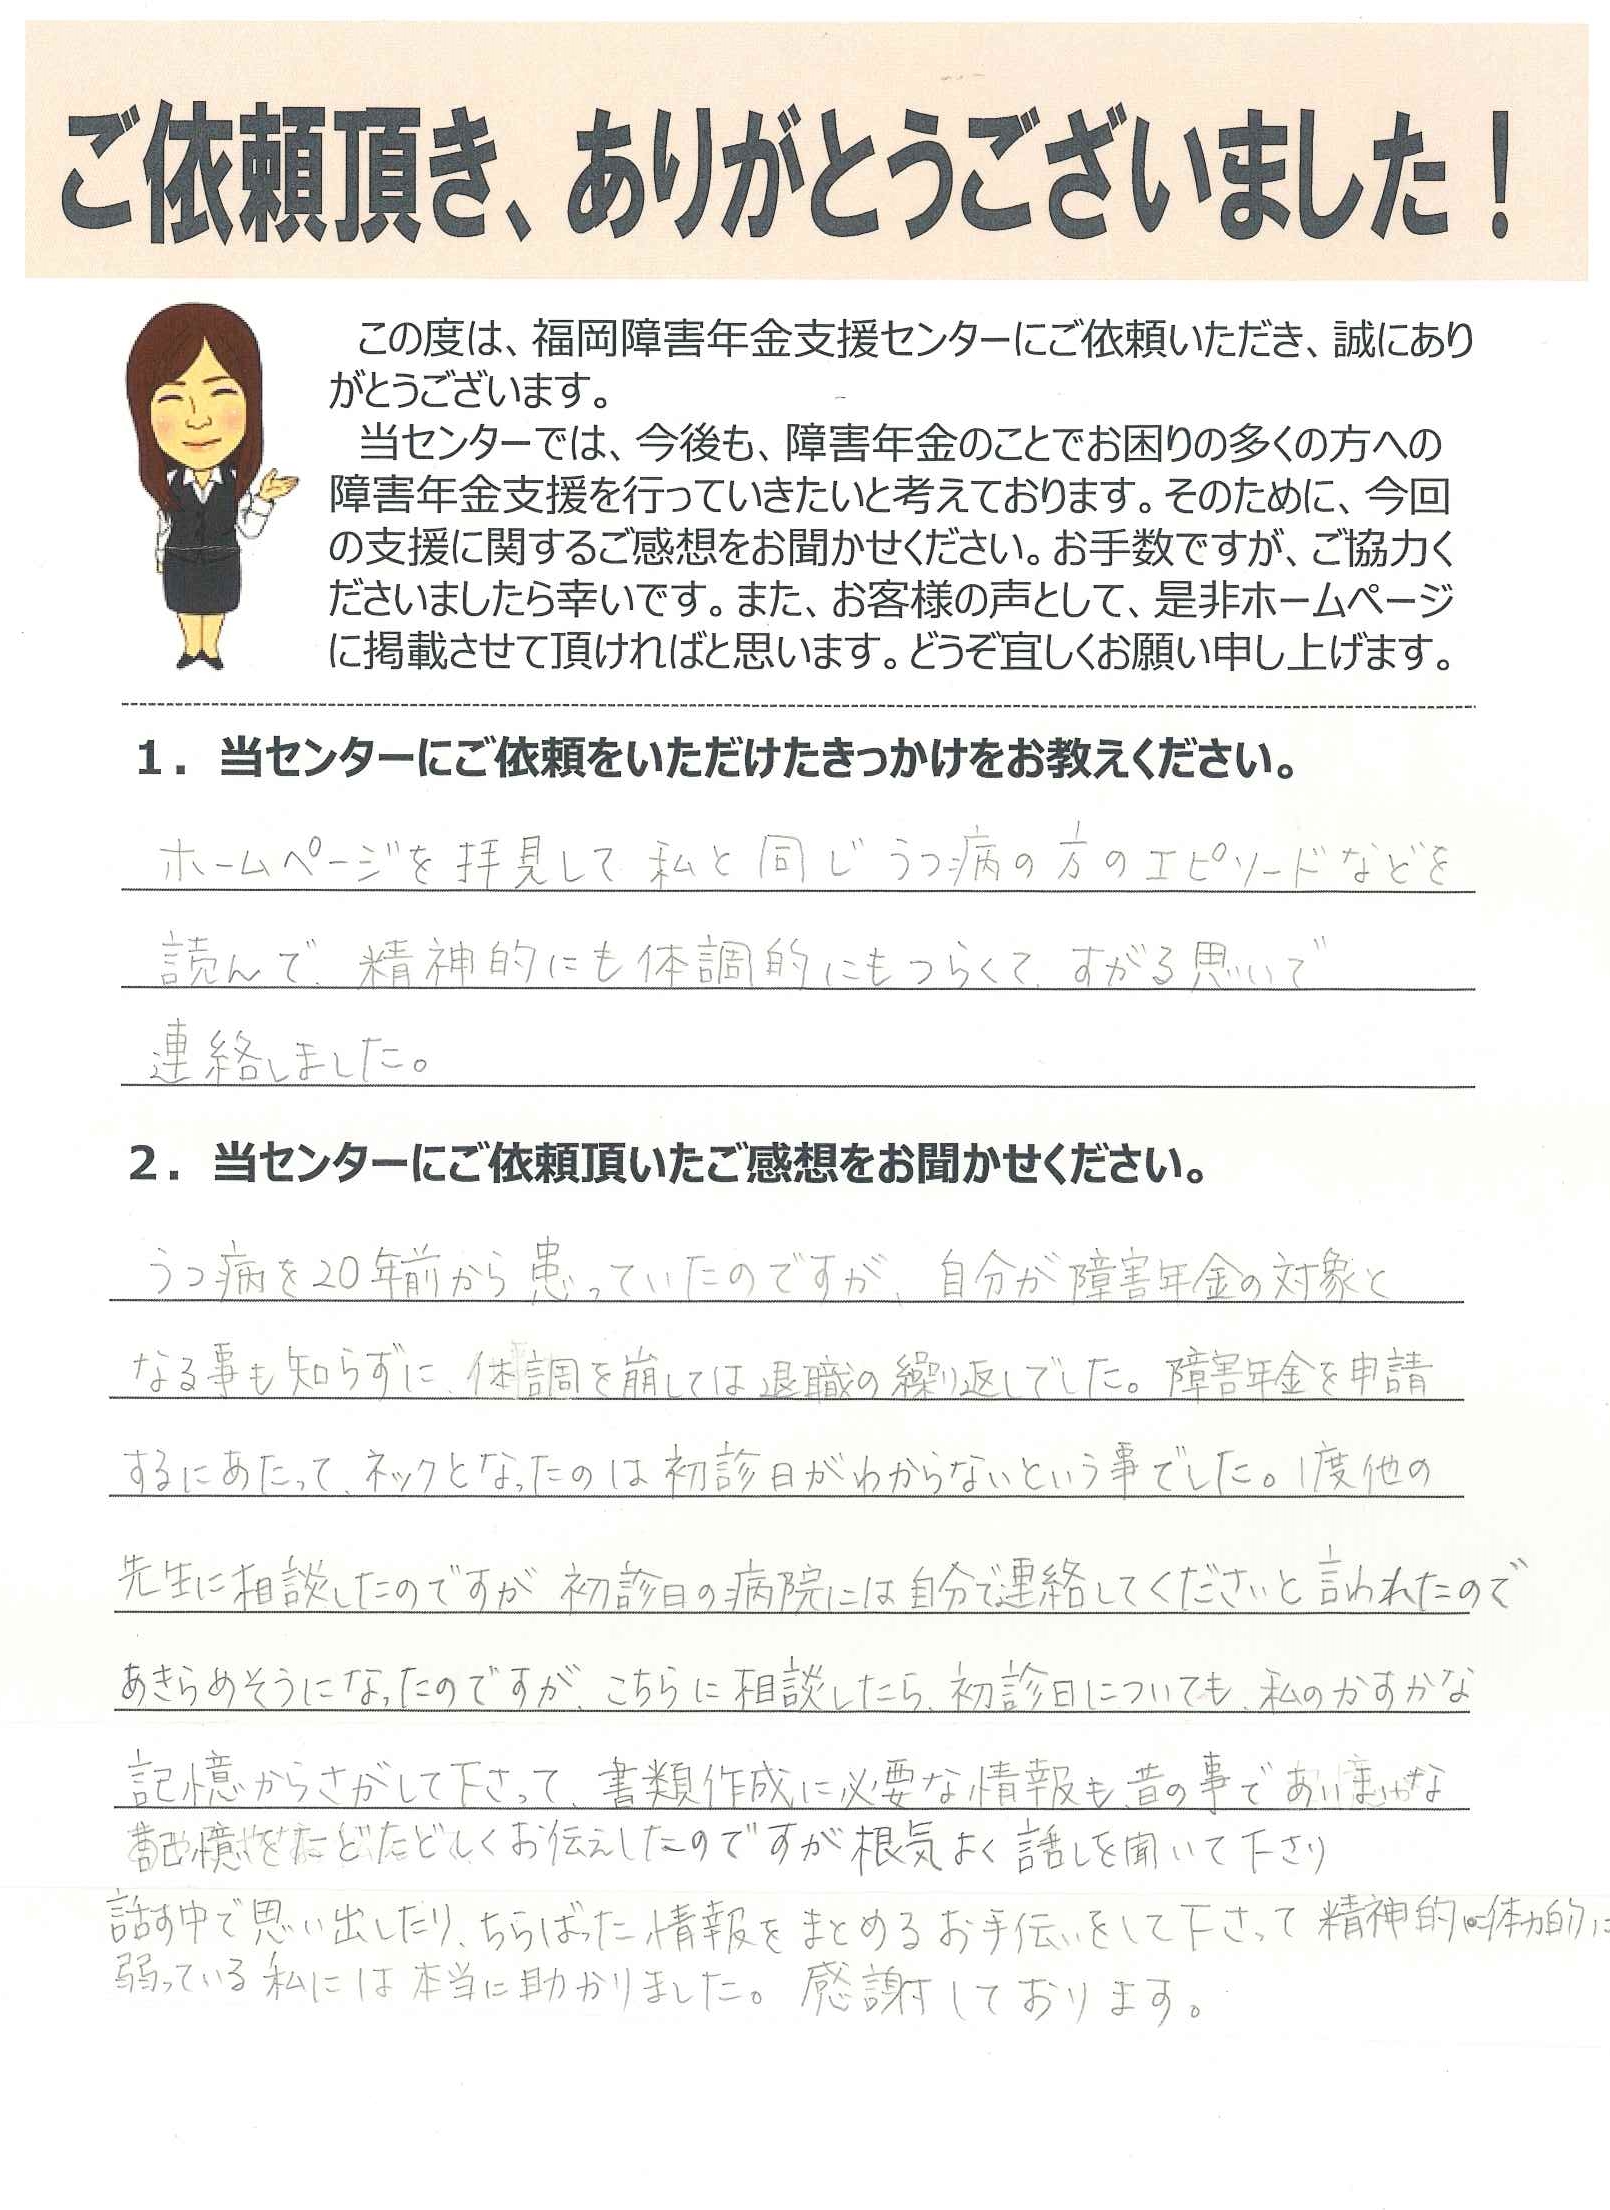 ご依頼頂き、ありがとうございました！
この度は、福岡障害年金支援センターにご依頼いただき、誠にあり
がとうございます。
当センターでは、今後も、障害年金のことでお困りの多くの方への
障害年金支援を行っていきたいと考えております。そのために、今回
の支援に関するご感想をお聞かせください。お手数ですが、ご協力く
ださいましたら幸いです。また、お客様の声として、是非ホームページ
に掲載させて頂ければと思います。どうぞ宜しくお願い申し上げます。
１．当センターにご依頼をいただけたきっかけをお教えください。
ホームページを拝見して私と同じうつ病の方のエピソードなどを
読んで、精神的にも体調的にもつらくて、すがる思いで
連絡しました。
２．当センターにご依頼頂いたご感想をお聞かせください。
うつ病を20年前から患っていたのですが、自分が障害年金の対象と
なる事も知らずに、体調を崩しては退職の繰り返しでした。障害年金を申請
するにあたって、ネックとなったのは初診日がわからないという事でした。1度他の
先生に相談したのですが初診日の病院には自分で連絡してくださいと言われたので
あきらめそうになったのですが、こちらに相談したら、初診日についても、私のかすかな
記憶からさがして下さって、書類作成に必要な情報も、昔の事であいまいな
記憶をたどたどしくお伝えしたのですが根気よく話しを聞いて下さり
話す中で思い出したり、ちらばった情報をまとめるお手伝いをして下さって精神的に体力的に
弱っている私には本当に助かりました。感謝しております。